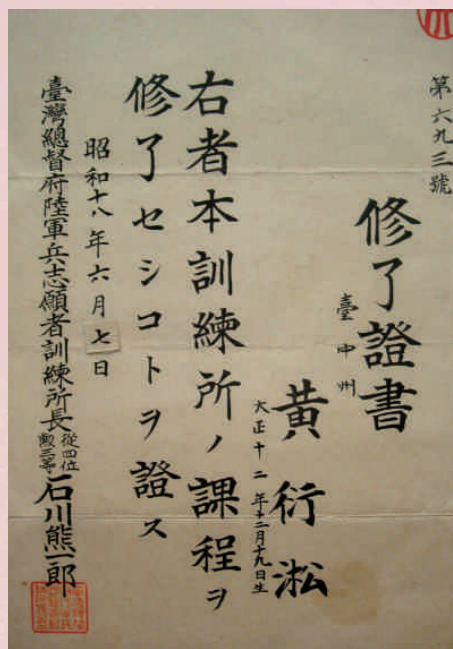 第六九三號
修了證書
臺中州
黃衍淞
大正十二年十二月十九日生
右者本訓練所ノ課程ヲ
修了セシコトヲ證ス
昭和十八年六月七日
臺灣總督府陸軍兵志願者訓練所長從四位勲三等石川熊一郎